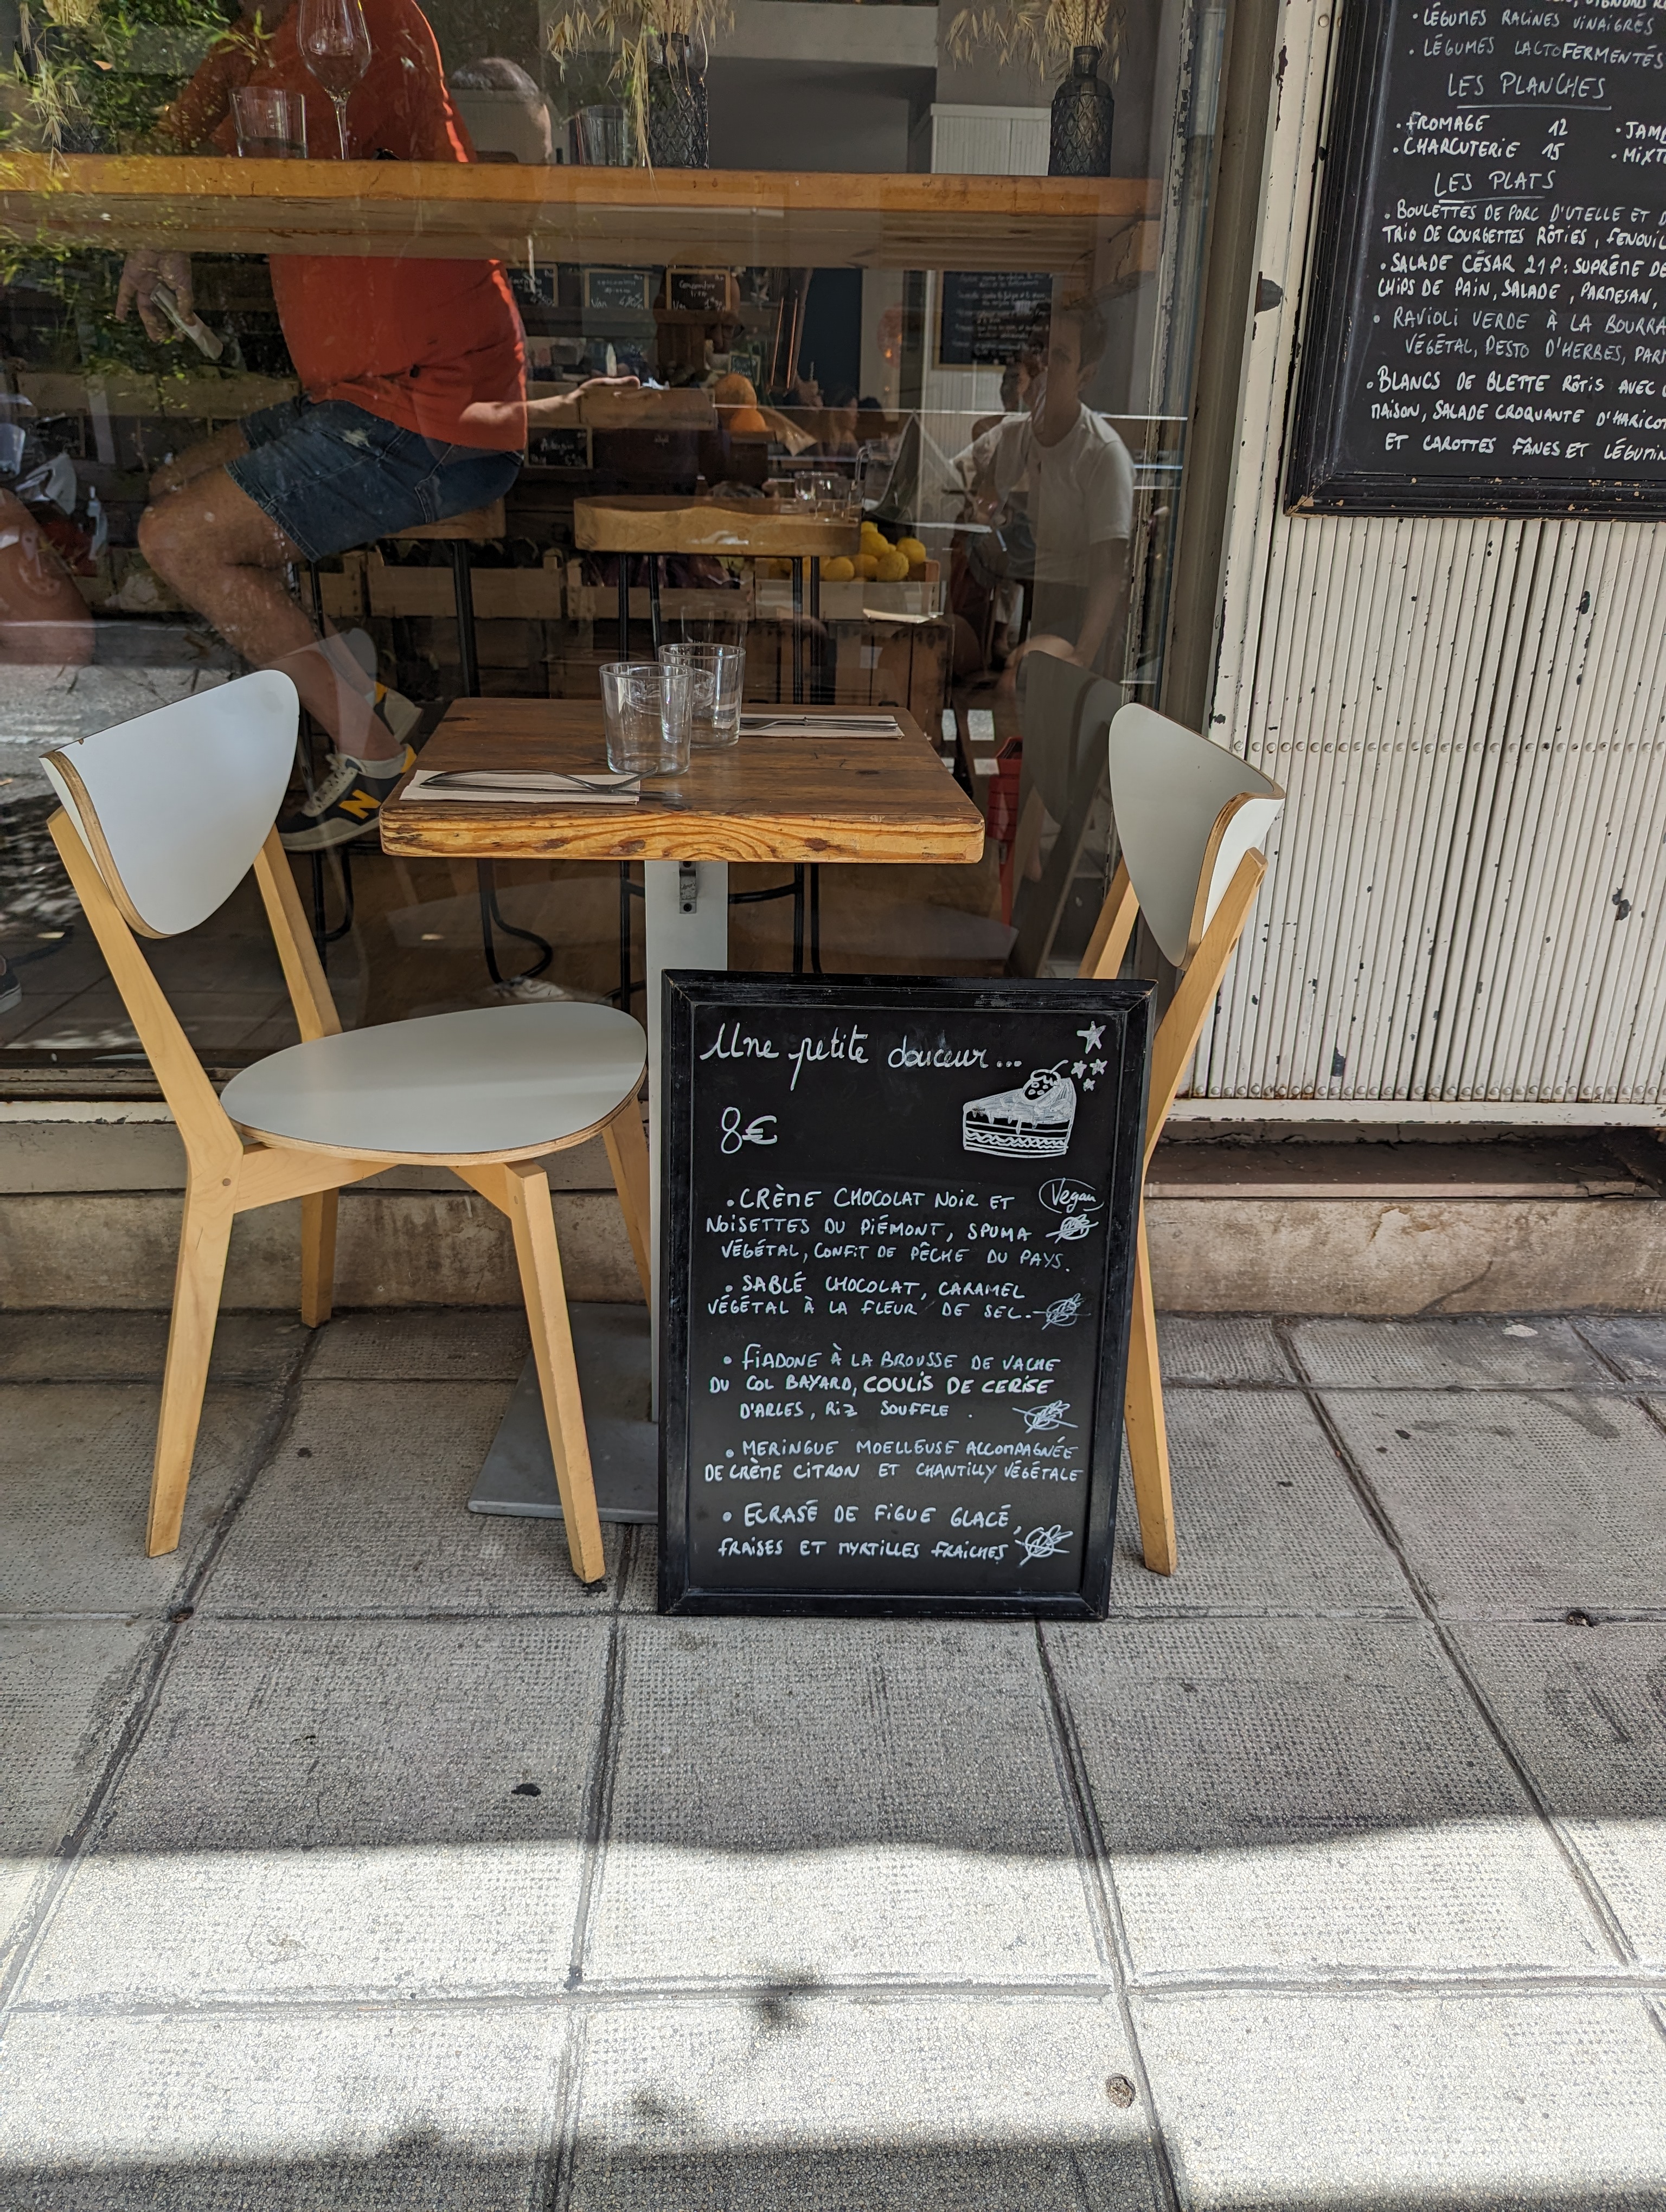 LÉGUMES RACINES VINAIGRÉS
• LÉGUMES LACTOFERMENTÉS
LES PLANCHES
• FROMAGE 12
• CHARCUTERIE 15
LES PLATS
• BOULETTES DE PORC D'UTELLE ET
TRIO DE COURGETTES RÔTIES, FENOUIL
• SALADE CÉSAR 21P: SUPRÊME DE
CHIPS DE PAIN, SALADE, PARMESAN,
• RAVIOLI VERDE À LA
VÉGÉTAL, PESTO D'HERBES,
• BLANCS DE BLETTE RÔTIS AVEC
MAISON, SALADE CROQUANTE
ET CAROTTES FÂNES ET
N
Une petite douceur...
8€
• CRÈME CHOCOLAT NOIR ET Vegan
NOISETTES DU PIÉMONT, SPUMA
VÉGÉTAL, CONFIT DE PÊCHE DU PAYS.
• SABLÉ CHOCOLAT, CARAMEL
VÉGÉTAL À LA FLEUR DE SEL.
• FIADONE À LA BROUSSE DE VACHE
DU COL BAYARD, COULIS DE CERISE
D'ARLES, RIZ SOUFFLE.
• MERINGUE MOELLEUSE ACCOMPAGNÉE
DE CRÈME CITRON ET CHANTILLY VÉGÉTALE
• ECRASÉ DE FIGUE GLACÉ,
FRAISES ET MYRTILLES FRAICHES